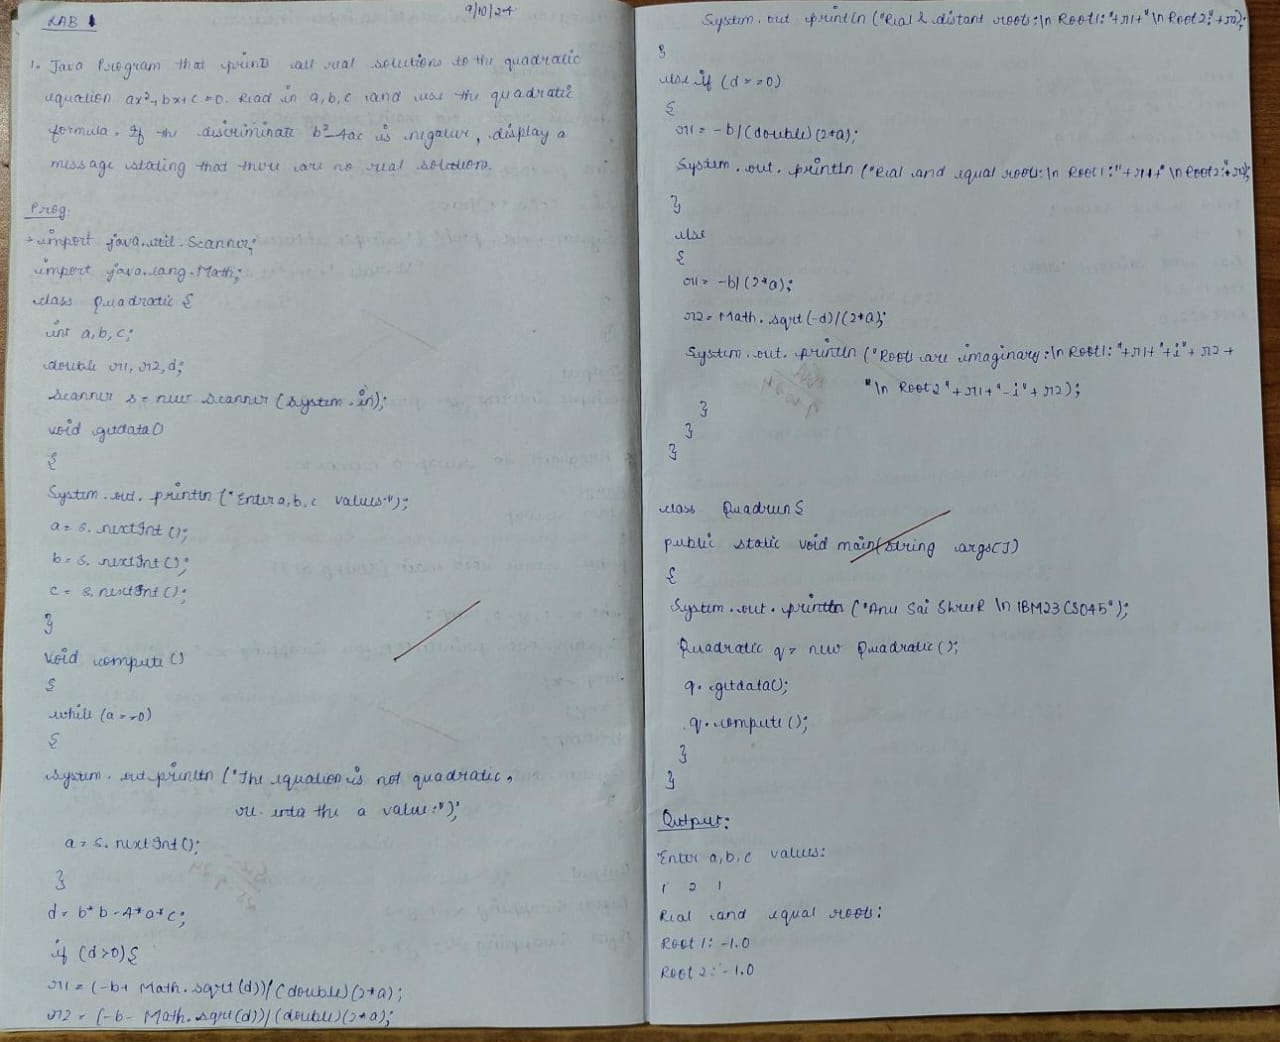 LAB 1
9/10/24
1. Java Program that prints all real solutions to the quadratic
equation ax²+bx+c=0. Read in a,b,c and use the quadratic
formula. If the discriminate b²-4ac is negative, display a
message stating that there are no real solutions.
Prog:
→ import java.util.Scanner;
import java.lang.Math;
class Quadratic {
int a,b,c;
double r1, r2, d;
Scanner s = new Scanner (System.in);
void getdata()
{
System.out.println ("Enter a,b,c values:");
a = s.nextInt ();
b = s.nextInt ();
c = s.nextInt ();
}
void compute ()
{
while (a==0)
{
System.out.println ("The equation is not quadratic,
re enter the a value:");
a = s.nextInt ();
}
d = b*b-4*a*c;
if (d>0){
r1 = (-b+ Math.sqrt (d))/(double)(2*a);
r2 = (-b- Math.sqrt(d))/(double)(2*a);
System.out println ("Real & distant roots:\n Root1:"+r1+"\n Root2:"+r2);
}
else if (d==0)
{
r1 = -b/(double)(2*a);
System.out.println ("Real and equal roots:\n Root1:"+r1+"\n Root2:"+r2);
}
else
{
r1 = -b/(2*a);
r2 = Math.sqrt(-d)/(2*a);
System.out.println ("Roots are imaginary:\n Root1: "+r1+"+i"+r2+
"\n Root2"+r1+"-i"+r2);
}
}
}
class Quadrun {
public static void main(String args[])
{
System.out.println ("Anu Sai Shree \n 1BM23CS045");
Quadratic q = new Quadratic();
q.getdata();
q.compute();
}
}
Output:
Enter a,b,c values:
1 2 1
Real and equal roots:
Root 1: -1.0
Root 2: -1.0